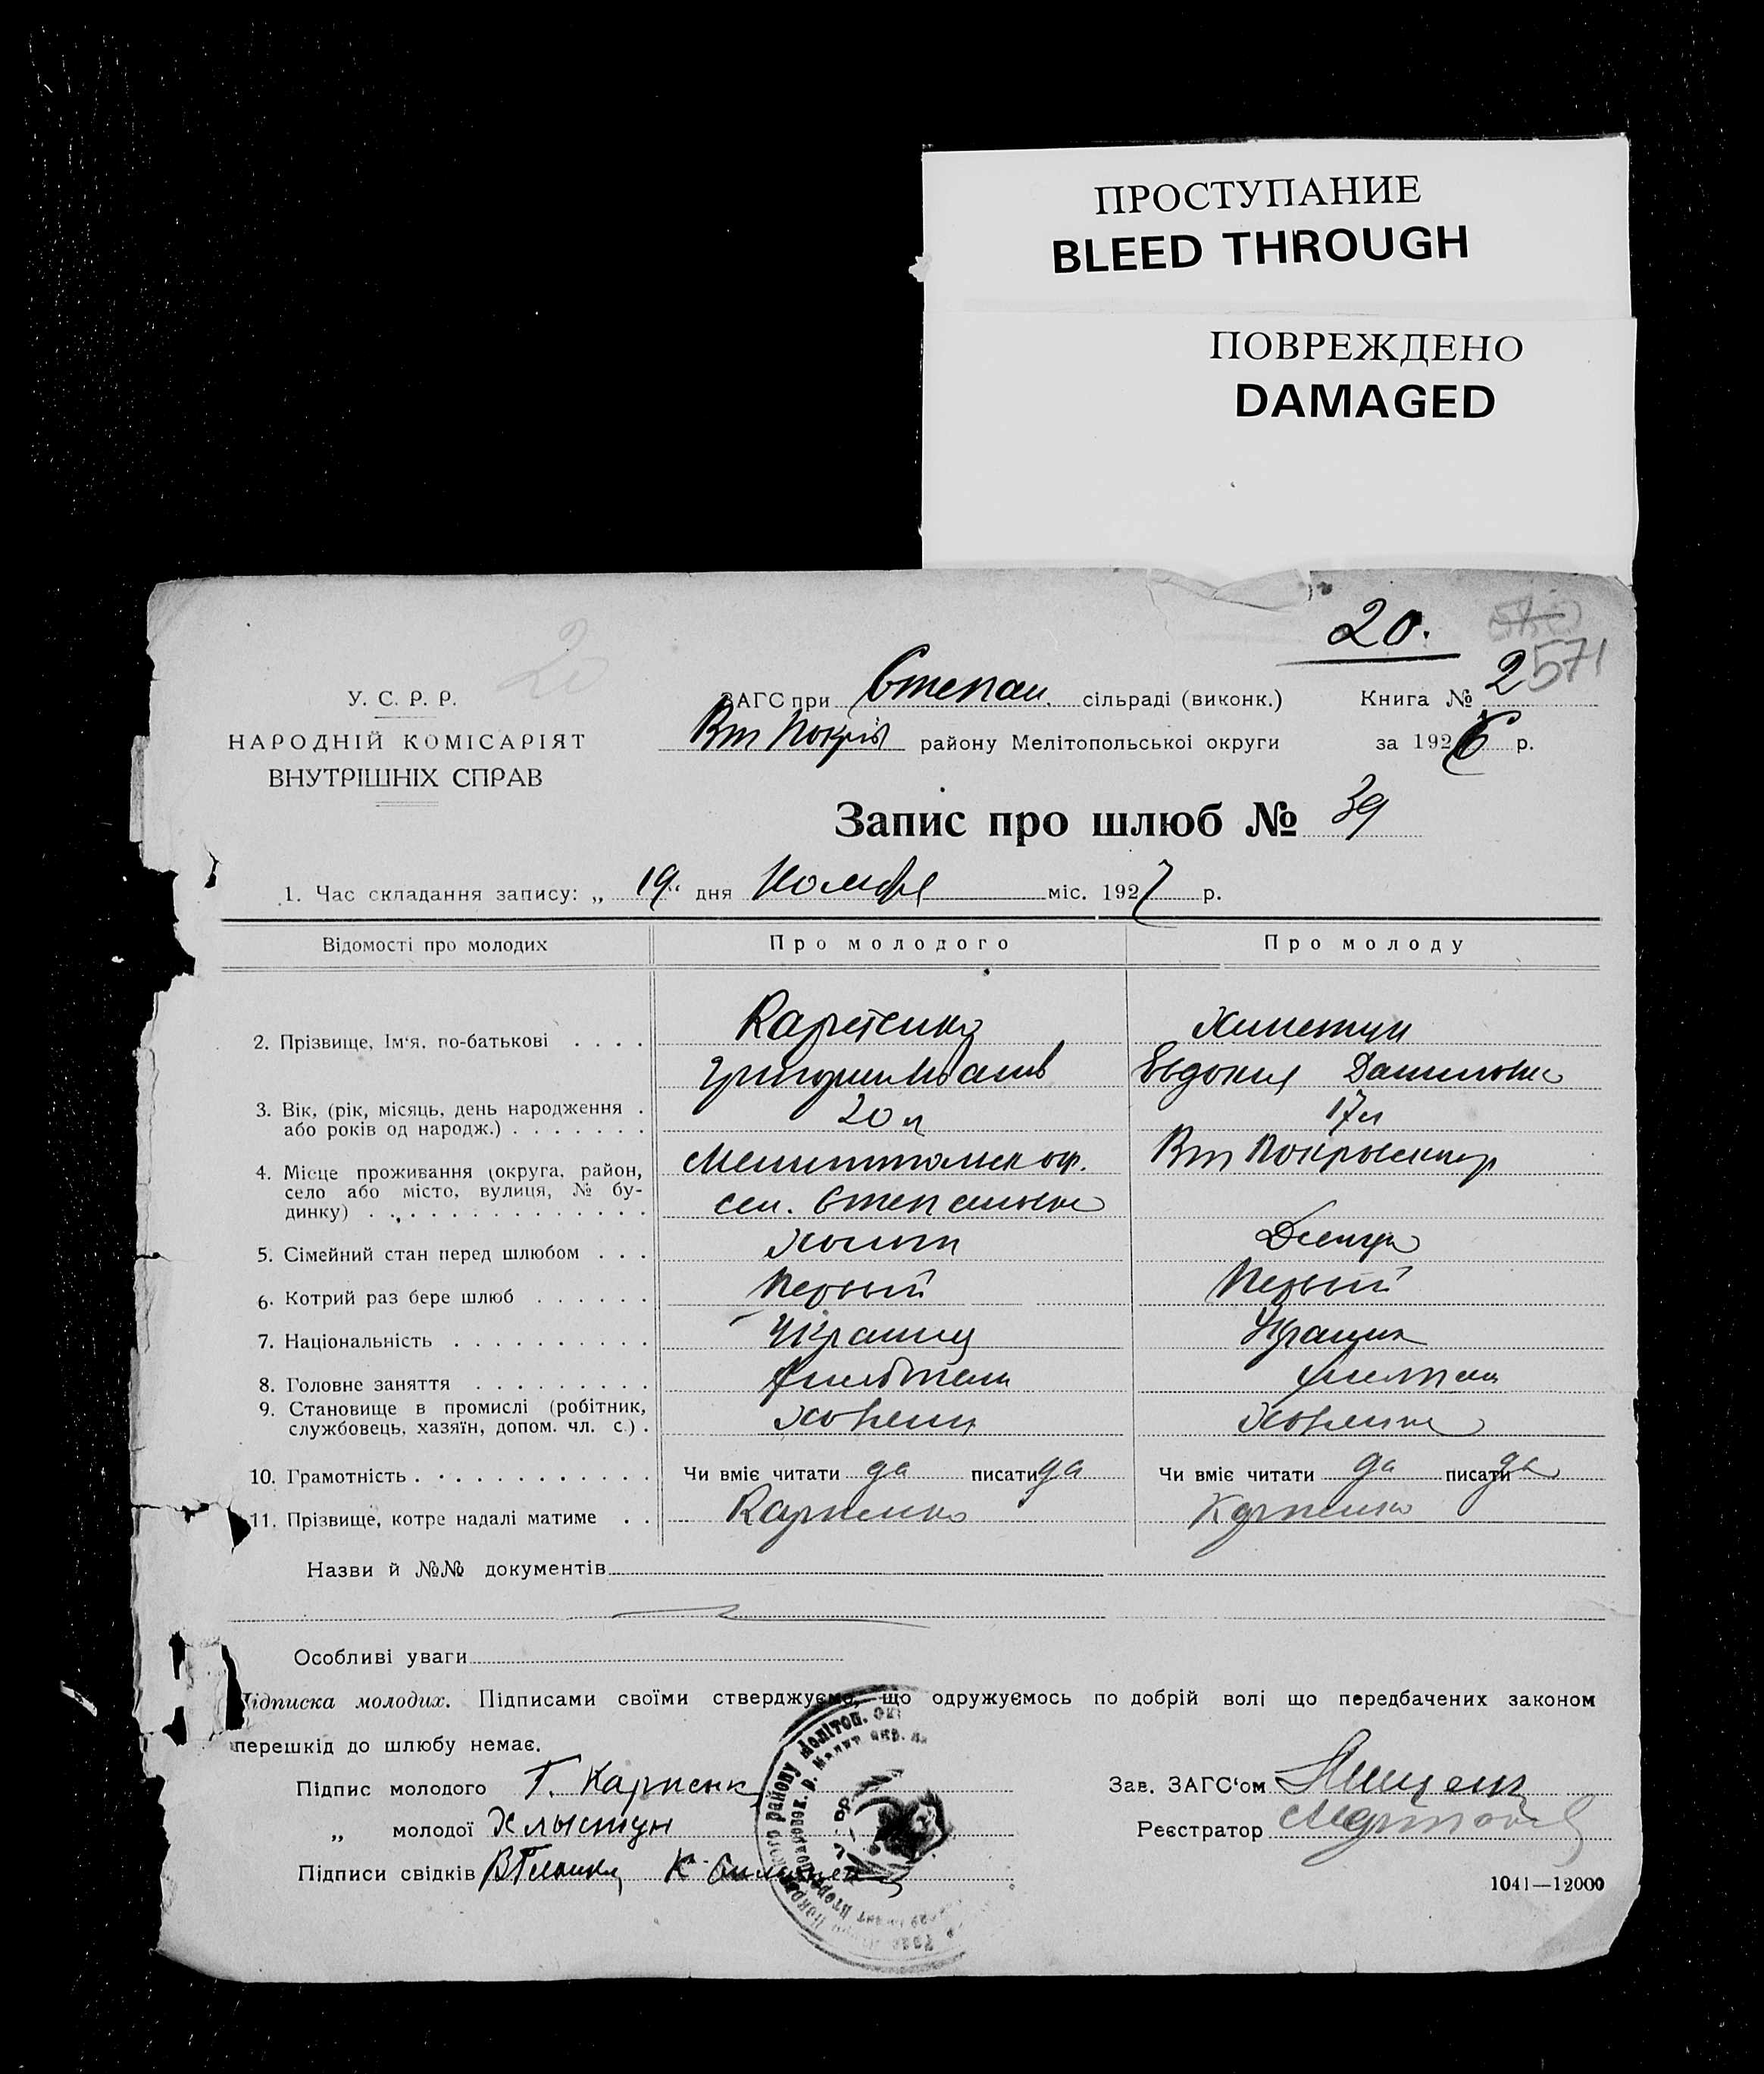 ПРОСТУПАНИЕ
BLEED THROUGH
ПОВРЕЖДЕНО
DAMAGED
20.
571
20
У. С. Р. Р.
НАРОДНІЙ КОМІСАРІЯТ
ВНУТРІШНІХ СПРАВ
ЗАГС при Степан. сільраді (виконк.) Книга № 2
Вт Покрів району Мелітопольської округи за 1926 р.
Запис про шлюб № 39
1. Час складання запису: „ 19 " дня Ноября міс. 1927 р.
Відомості про молодих Про молодого Про молоду
2. Прізвище, Ім'я, по-батькові . . . . Карпенко Хлистун
Григорий Евдокия Даниловна
3. Вік, (рік, місяць, день народження . 20 л 17 л
або років од народж.) . . . . . . .
4. Місце проживання (округа, район, Мелитопольск окр. Вт Покровскир
село або місто, вулиця, № бу-
динку) . . . . . . . . . . . . . . сел. Степановка
5. Сімейний стан перед шлюбом . . . Холост Девица
6. Котрий раз бере шлюб . . . . . . Первый Первый
7. Національність . . . . . . . . . . Украинец Украин
8. Головне заняття . . . . . . . . .
9. Становище в промислі (робітник,
службовець, хазяїн, допом. чл. с.) .
10. Грамотність . . . . . . . . . . . . Чи вміє читати да писати да Чи вміє читати да писати да
11. Прізвище, котре надалі матиме . . Карпенко Карпенко
Назви й №№ документів
Особливі уваги
Підписка молодих. Підписами своїми стверджуємо, що одружуємось по добрій волі що передбачених законом
перешкід до шлюбу немає.
Підпис молодого Г. Карпенк Зав. ЗАГС'ом
„ молодої Хлыстун Реєстратор
Підписи свідків
1041—12000